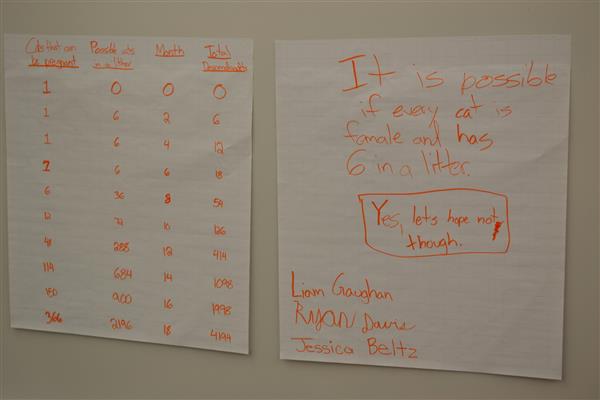 Cats that can be pregnant
Possible cats in a litter
Month
Total Descendants
1 0 0 0
1 6 2 6
1 6 4 12
1 6 6 18
6 36 8 54
12 72 10 126
48 288 12 414
114 684 14 1098
150 900 16 1998
366 2196 18 4194
It is possible
if every cat is
famale and has
6 in a litter.
Yes, let's hope not
though.
Liam Gaughan
Ryan Davis
Jessica Beltz